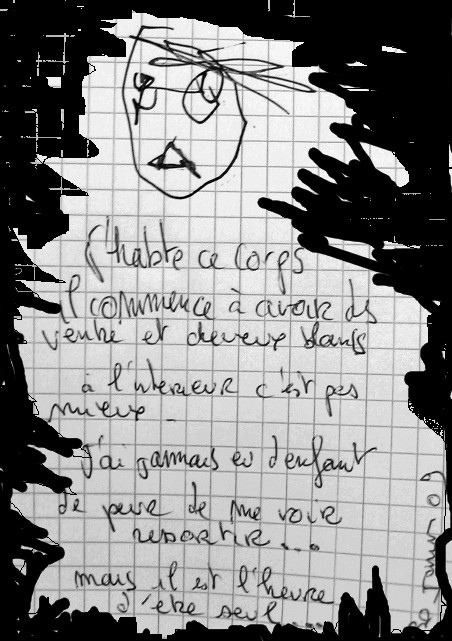 J'habte ce corps
il commence à avoir ds
ventre et cheveux blancs
à l'interieur c'est pas
mieux -
J'ai jammais eu d'enfant
de peur de me voir
ressortir...
mais il est l'heure
d'être seul ....